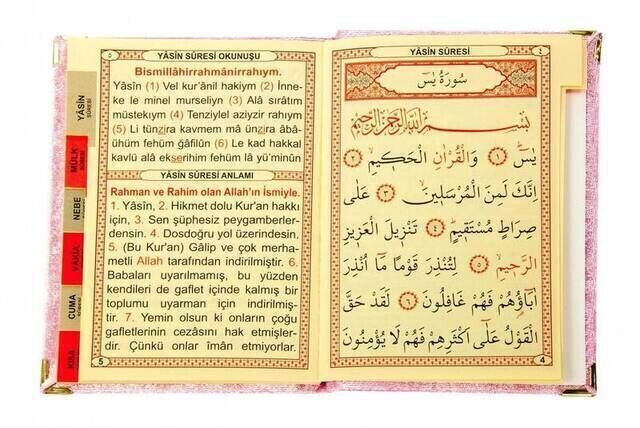 ٥
YÂSİN SÛRESİ OKUNUŞU
Bismillâhirrahmânirrahıym.
Yâsîn (1) Vel kur'ânil hakiym (2) İnne-
ke le minel murseliyn (3) Alâ sırâtım
müstekıym (4) Tenziylel aziyzir rahıym
(5) Li tünzira kavmem mâ ünzira âbâ-
ühüm fehüm ğâfilûn (6) Le kad hakkal
kavlü alâ ekserihim fehüm lâ yü'minûn
YÂSİN SÛRESİ ANLAMI
Rahman ve Rahim olan Allah'ın İsmiyle.
1. Yâsîn, 2. Hikmet dolu Kur'an hakkı
için, 3. Sen şüphesiz peygamberler-
densin. 4. Dosdoğru yol üzerindesin.
5. (Bu Kur'an) Gâlip ve çok merha-
metli Allah tarafından indirilmiştir. 6.
Babaları uyarılmamış, bu yüzden
kendileri de gaflet içinde kalmış bir
toplumu uyarman için indirilmiş-
tir. 7. Yemin olsun ki onların çoğu
gafletlerinin cezasını hak etmişler-
dir. Çünkü onlar îman etmiyorlar.
5
YÂSİN
SÛRESİ
MÜLK
SÛRESİ
NEBE
VÂKIA
CUMA
KISA
YÂSİN SÛRESİ
٤
سُورَةُ يٰسٓ
بِسْمِ اللّٰهِ الرَّحْمٰنِ الرَّحِيمِ
يٰسٓ ﴿١﴾ وَالْقُرْاٰنِ الْحَكِيمِ ﴿٢﴾
اِنَّكَ لَمِنَ الْمُرْسَلِينَ ﴿٣﴾ عَلٰى
صِرَاطٍ مُسْتَقِيمٍ ﴿٤﴾ تَنْزِيلَ الْعَزِيزِ
الرَّحِيمِ ﴿٥﴾ لِتُنْذِرَ قَوْمًا مَٓا اُنْذِرَ
اٰبَٓاؤُهُمْ فَهُمْ غَافِلُونَ ﴿٦﴾ لَقَدْ حَقَّ
الْقَوْلُ عَلٰٓى اَكْثَرِهِمْ فَهُمْ لَا يُؤْمِنُونَ
4